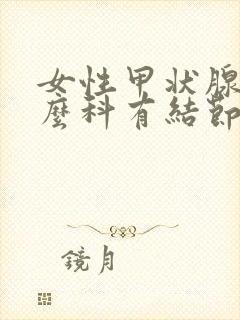 女性甲状腺
麼科有結節
鏡月